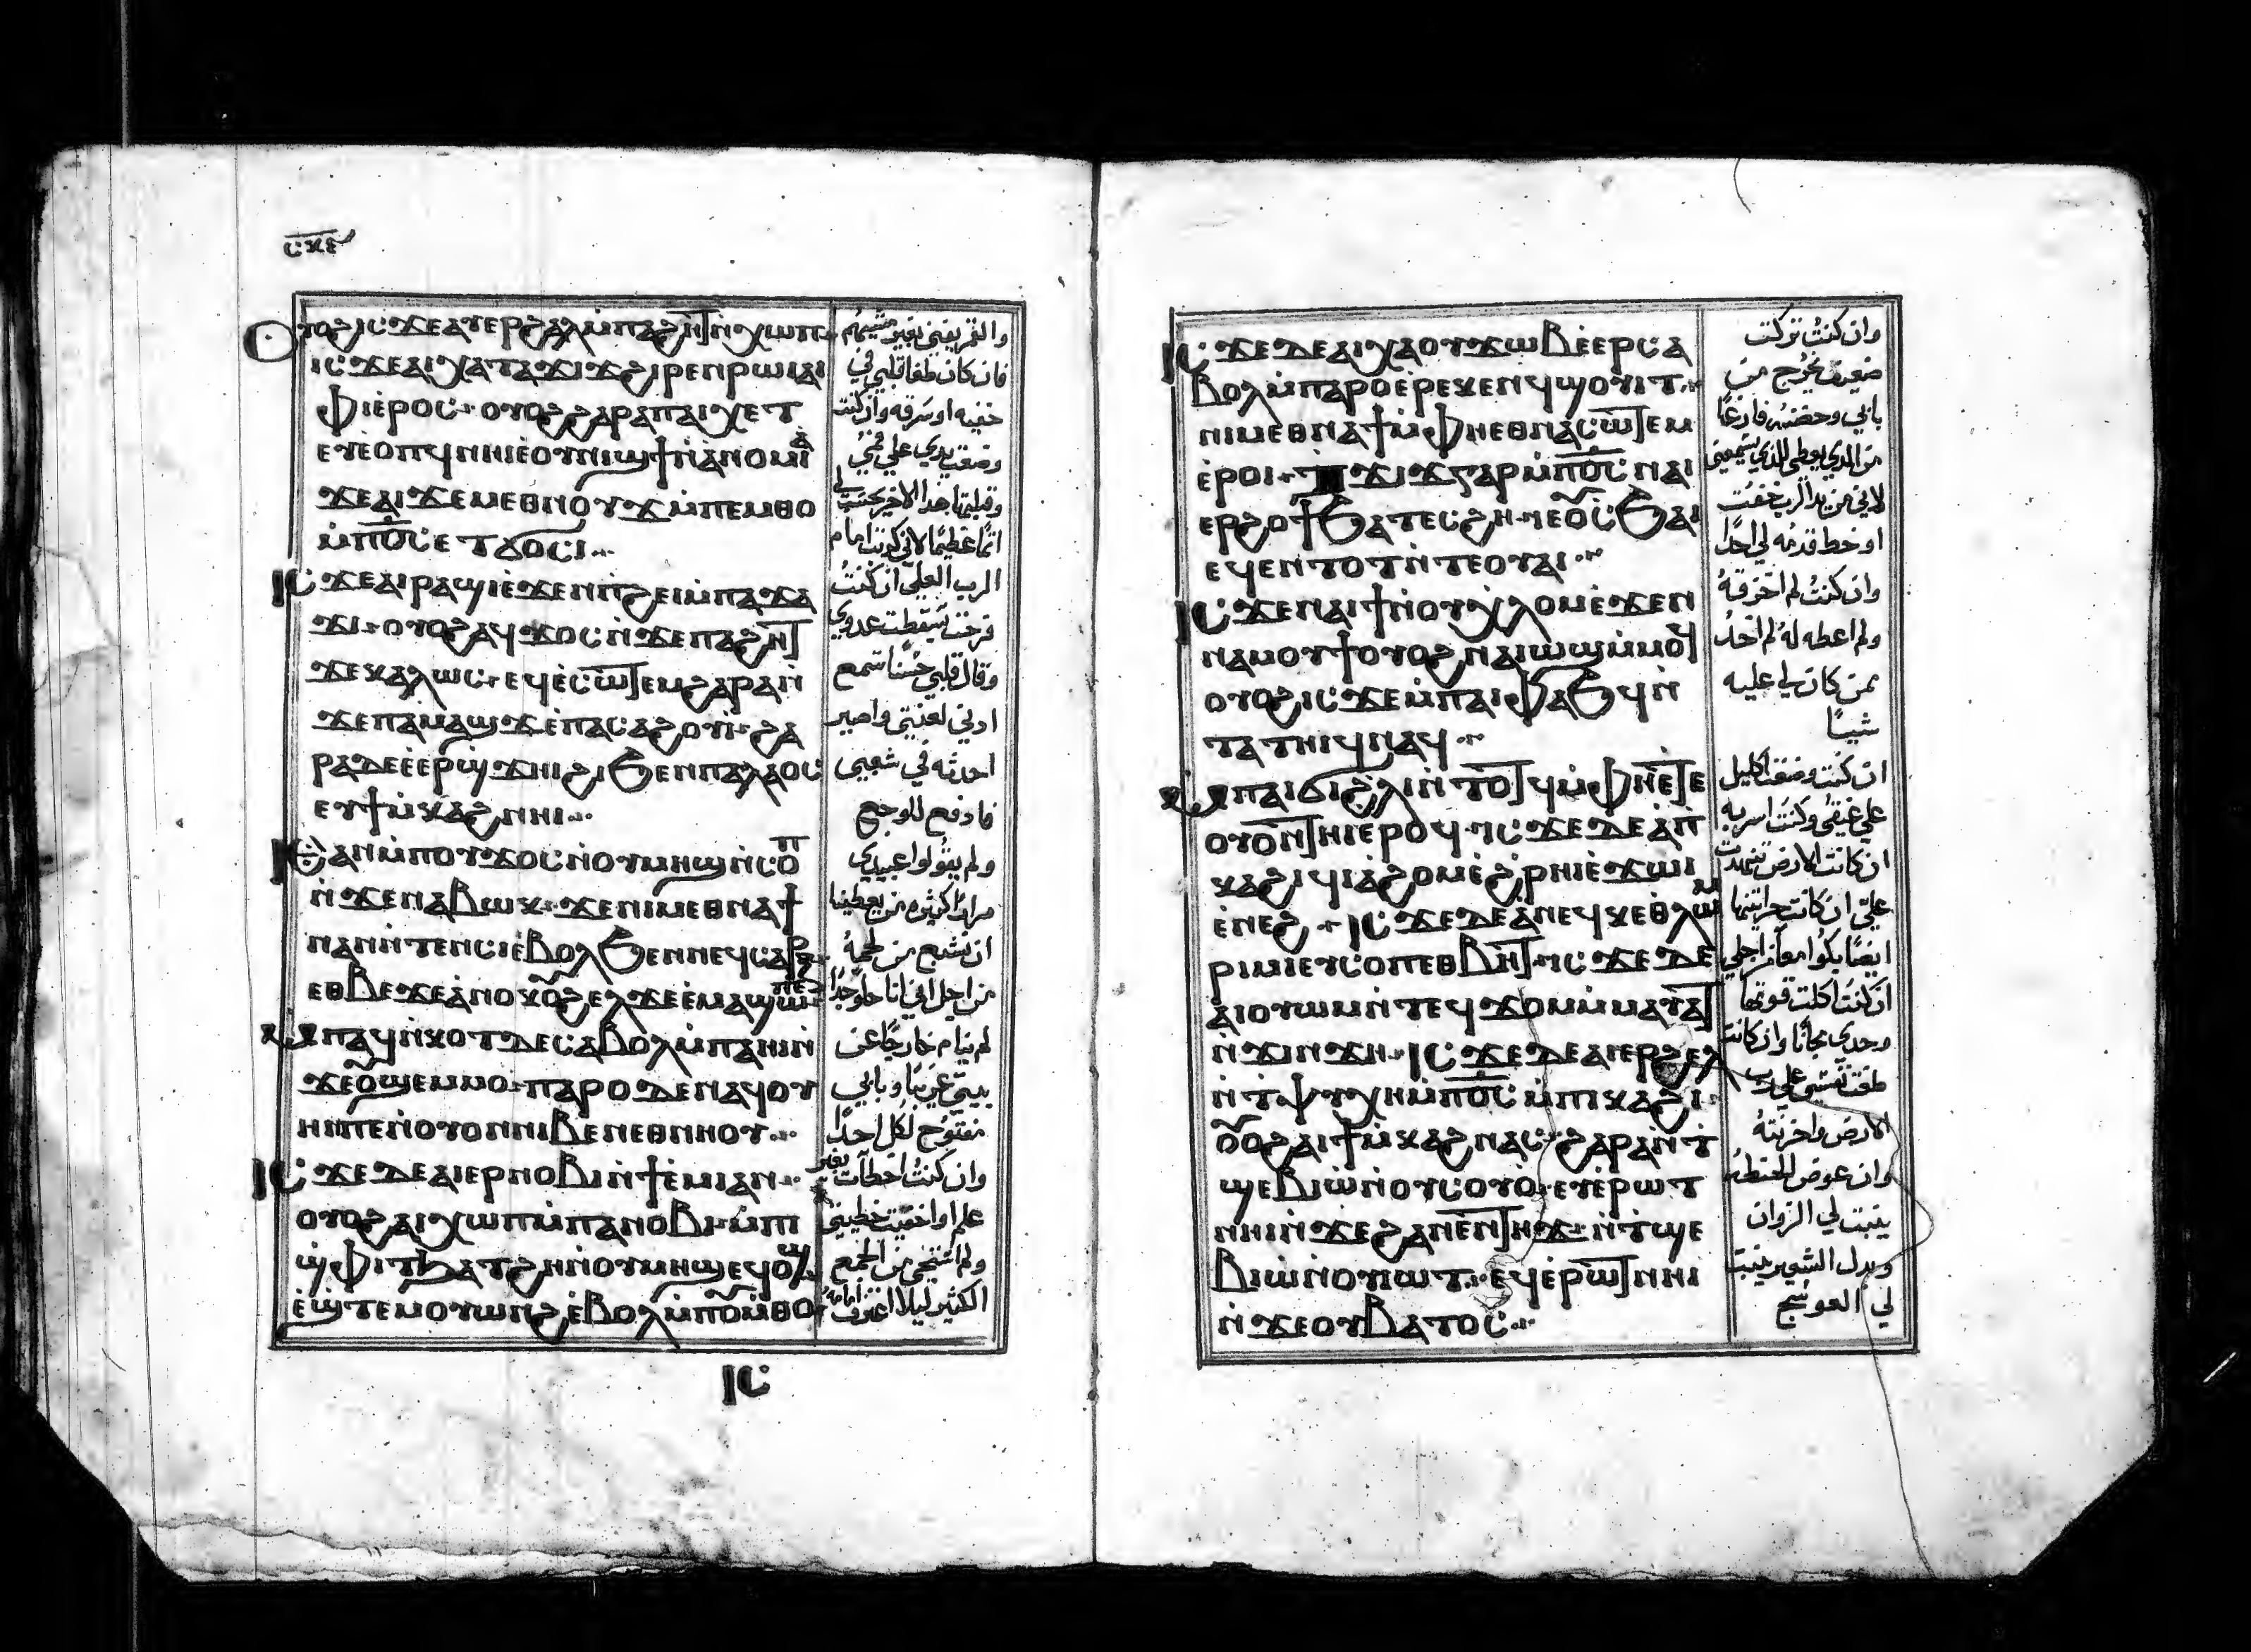 ⲥⲝⲉ
Ⲟⲩⲟϩ ⲓⲥϫⲉ ⲁⲩⲉⲣϩⲁⲗ ⲙ̀ⲡⲁϩⲏⲧ ⲛ̀ⲭⲱⲡ·
ⲓⲥϫⲉ ⲁⲓⲭⲁ ⲧⲁϫⲓϫ ϩⲓⲣⲉⲛ ⲣⲱⲓ ⲁⲓ
ϯⲡⲓ ⲉ̀ⲣⲟⲥ· ⲟⲩⲟϩ ϩⲁⲣⲁ ⲡⲁⲓⲭⲉⲧ
ⲉⲩⲉ̀ⲟⲡϥ ⲛⲏⲓ ⲉ̀ⲟⲩⲛⲓϣϯ ⲛ̀ⲁⲛⲟⲙⲓⲁ̀
ϫⲉ ⲁⲓϫⲉ ⲙⲉⲑⲛⲟⲩϫ ⲙ̀ⲡⲉⲙⲑⲟ
ⲙ̀ⲡⲟ̅ⲥ̅ ⲉⲧϭⲟⲥⲓ··
ⲓⲥϫⲉ ⲁⲓⲣⲁϣⲓ ⲉ̀ϫⲉⲛ ⲡ̀ϩⲉⲓ ⲙ̀ⲡⲁϫⲁ
ϫⲓ· ⲟⲩⲟϩ ⲁϥϫⲟⲥ ⲛ̀ϫⲉ ⲡⲁϩⲏⲧ
ϫⲉ ⲕⲁⲗⲱⲥ· ⲉϥⲉ̀ⲥⲱⲧⲉⲙ ϩⲁⲣⲁ ⲛ̀
ϫⲉ ⲡⲁⲙⲁϣϫ ⲉ̀ⲡⲁⲥⲁϩⲟⲩⲓ· ϩⲁ
ⲣⲁ ⲇⲉ ⲉ̀ⲉ̀ⲣϣϫⲏⲓ ϩⲓ ϧⲉⲛ ⲡⲁⲗⲁⲟⲥ
ⲉⲩϯⲙ̀ⲕⲁϩ ⲛⲏⲓ··
ⲓⲥϩⲁⲛ ⲙ̀ⲡⲟⲩϫⲟⲥ ⲛ̀ⲟⲩⲙⲏϣ ⲛ̀ⲥⲟⲡ
ⲛ̀ϫⲉ ⲛⲁⲃⲱⲕ· ϫⲉ ⲛⲓⲙ ⲉⲑⲛⲁϯ
ⲛⲁⲛ ⲛ̀ⲧⲉⲛⲥⲓ ⲉ̀ⲃⲟⲗ ϧⲉⲛ ⲛⲉϥⲥⲁⲣⲝ·
ⲉⲑⲃⲉ ϫⲉ ⲁ̀ⲛⲟⲕ ⲟⲩϩⲉⲗϫⲉ ⲉ̀ⲙⲁϣⲱ
ⲙ̀ⲡⲁϥⲛ̀ⲕⲟⲧ ⲇⲉ ⲥⲁⲃⲟⲗ ⲙ̀ⲡⲁⲏⲓ ⲛ̀
ϫⲉ ⲟⲩϣⲉⲙⲙⲟ· ⲡⲁⲣⲟ ⲇⲉ ⲛⲁϥⲟⲩ
ⲏⲛ ⲡⲉ ⲛ̀ⲟⲩⲟⲛ ⲛⲓⲃⲉⲛ ⲉⲑⲛⲏⲟⲩ··
ⲓⲥϫⲉ ⲇⲉ ⲁⲓⲉⲣⲛⲟⲃⲓ ⲛ̀ϯⲉ̀ⲙⲓ ⲁⲛ··
ⲟⲩⲟϩ ⲁⲓⲭⲱⲡ ⲙ̀ⲡⲁⲛⲟⲃⲓ· ⲙ̀ⲡⲓ
ϣⲫⲓⲧ ϧⲁⲧϩⲏ ⲛ̀ⲟⲩⲙⲏϣ ⲉϥⲟϣ
ⲉ̀ϣⲧⲉⲙⲟⲩⲱⲛϩ ⲉ̀ⲃⲟⲗ ⲙ̀ⲡⲟⲩⲙ̀ⲑⲟ
ⲓⲥ
والتمريفني بغير مشيتهم
فان كان طغا قلبي في
خفيه او سرقه وان كنت
وضعت يدي علي فمي
وقبلتها هذا الاخر يحسب لي
اثما عظيما لاني كدبت امام
الرب العلي ان كنت
فرحت بسقطت عدوي
وقال قلبي حسنا تسمع
ادني لعنتي واصير
احدثه في شعبي
فادفع للوجع
ولم يقولوا عبيدي
مرارا كثيره من يعطينا
ان نشبع من لحمه
من اجل اني انا حلو جدا
لم ينام خارجا عن
بيتي غريبا وبابي
مفتوح لكل احدا
وان كنت اخطات بغير
علم او اخفيت خطيتي
ولم استحي من الجمع
الكثير ليلا اعترف امامه
ⲓⲥϫⲉ ⲇⲉ ⲁⲓⲭⲁ ⲟⲩϫⲱⲃ ⲉ̀ⲉⲣⲥⲁ
ⲃⲟⲗ ⲙ̀ⲡⲁⲣⲟ ⲉ̀ⲣⲉ ⲕⲉⲛϥ ϣⲟⲩⲓⲧ·
ⲛⲓⲙ ⲉⲑⲛⲁϯ ⲙ̀ⲫⲏ ⲉⲑⲛⲁⲥⲱⲧⲉⲙ
ⲉ̀ⲣⲟⲓ· ⲧϫⲓϫ ⲅⲁⲣ ⲙ̀ⲡⲟ̅ⲥ̅ ⲛⲁⲓ
ⲉⲣϩⲟϯ ϧⲁ ⲧⲉⲥϩⲏ· ⲛⲉⲟⲩⲥϧⲁⲓ
ⲉϥⲉⲛⲧⲟⲧ ⲛ̀ⲧⲉ ⲟⲩⲁⲓ··
ⲓⲥϫⲉ ⲛⲁⲓϯ ⲛ̀ⲟⲩⲭⲗⲟⲙ ⲉ̀ϫⲉⲛ
ⲛⲁⲙⲟⲩϯ ⲟⲩⲟϩ ⲛⲁⲓⲱϣ ⲙ̀ⲙⲟϥ
ⲟⲩⲟϩ ⲓⲥϫⲉ ⲙ̀ⲡⲁⲓⲫⲁϧϥ ⲛ̀
ⲧⲁⲧⲏⲓϥ ⲛⲁϥ··
ⲙ̀ⲡⲁⲓϭⲓ ϩⲗⲓ ⲛ̀ⲧⲟⲧϥ ⲙ̀ⲫⲏ ⲉ̀ⲧⲉ
ⲟⲩⲟⲛⲧⲏⲓ ⲉⲣⲟϥ· ⲓⲥϫⲉ ⲇⲉ ⲁ̀ⲡ
ⲕⲁϩⲓ ϥⲓⲁ̀ϩⲟⲙ ⲉ̀ϩ̀ⲣⲏⲓ ⲉ̀ϫⲱⲓ
ⲉ̀ⲛⲉϩ· ⲓⲥϫⲉ ⲇⲉ ⲁ̀ⲛⲉϥⲕⲉⲑⲗⲱⲙ
ⲣⲓⲙⲓ ⲉⲩⲥⲟⲡ ⲉⲑⲃⲏⲧ· ⲓⲥϫⲉ ⲇⲉ
ⲁⲓⲟⲩⲱⲙ ⲛ̀ⲧⲉϥϫⲟⲙ ⲙ̀ⲙⲁⲩⲁⲧ
ⲛ̀ϫⲓⲛϫⲏ· ⲓⲥϫⲉ ⲇⲉ ⲁⲓⲉⲣϩⲉⲗ
ⲛ̀ⲧⲯⲩⲭⲏ ⲙ̀ⲡⲟ̅ⲥ̅ ⲙ̀ⲡⲓⲕⲁϩⲓ·
ⲟⲩⲟϩ ⲁⲓϯⲙ̀ⲕⲁϩ ⲛⲁⲥ· ϩⲁⲣⲁ ⲛ̀ⲧ
ϣⲉⲃⲓⲱ̀ ⲛ̀ⲟⲩⲥⲟⲩⲟ̀· ⲉⲩⲉ̀ⲣⲱⲧ
ⲛⲏⲓ ⲛ̀ϫⲉ ϩⲁⲛⲉ̀ⲛⲧⲏϫ· ⲛ̀ⲧϣⲉ
ⲃⲓⲱ̀ ⲛ̀ⲟⲩⲓⲱⲧ· ⲉϥⲉ̀ⲣⲱⲧ ⲛⲏⲓ
ⲛ̀ϫⲉ ⲟⲩⲃⲁⲧⲟⲥ··
وان كنت تركت
ضعيف يخرج من
بابي وحضنه فارغا
من الدي يعطي للدي يسمعني
لاني من يد الرب خفت
او خط قدمه لي احدا
وان كنت لم اخرقه
ولم اعطه له لم اخد
ممن كان لي عليه
شيا
ان كنت وضعت اكليل
علي عنقي وكنت اسر به
ان كانت الارض تنهدت
علي ان كانت حراتيتها
ايضا بكوا معا من اجلي
ان كنت اكلت قوتها
وحدي مجانا وان كانت
طغت نفسي علي رب
الارض واحزنته
وان عوض الحنطه
ينبت لي الزوان
وبدل الشعير ينبت
لي العوسج